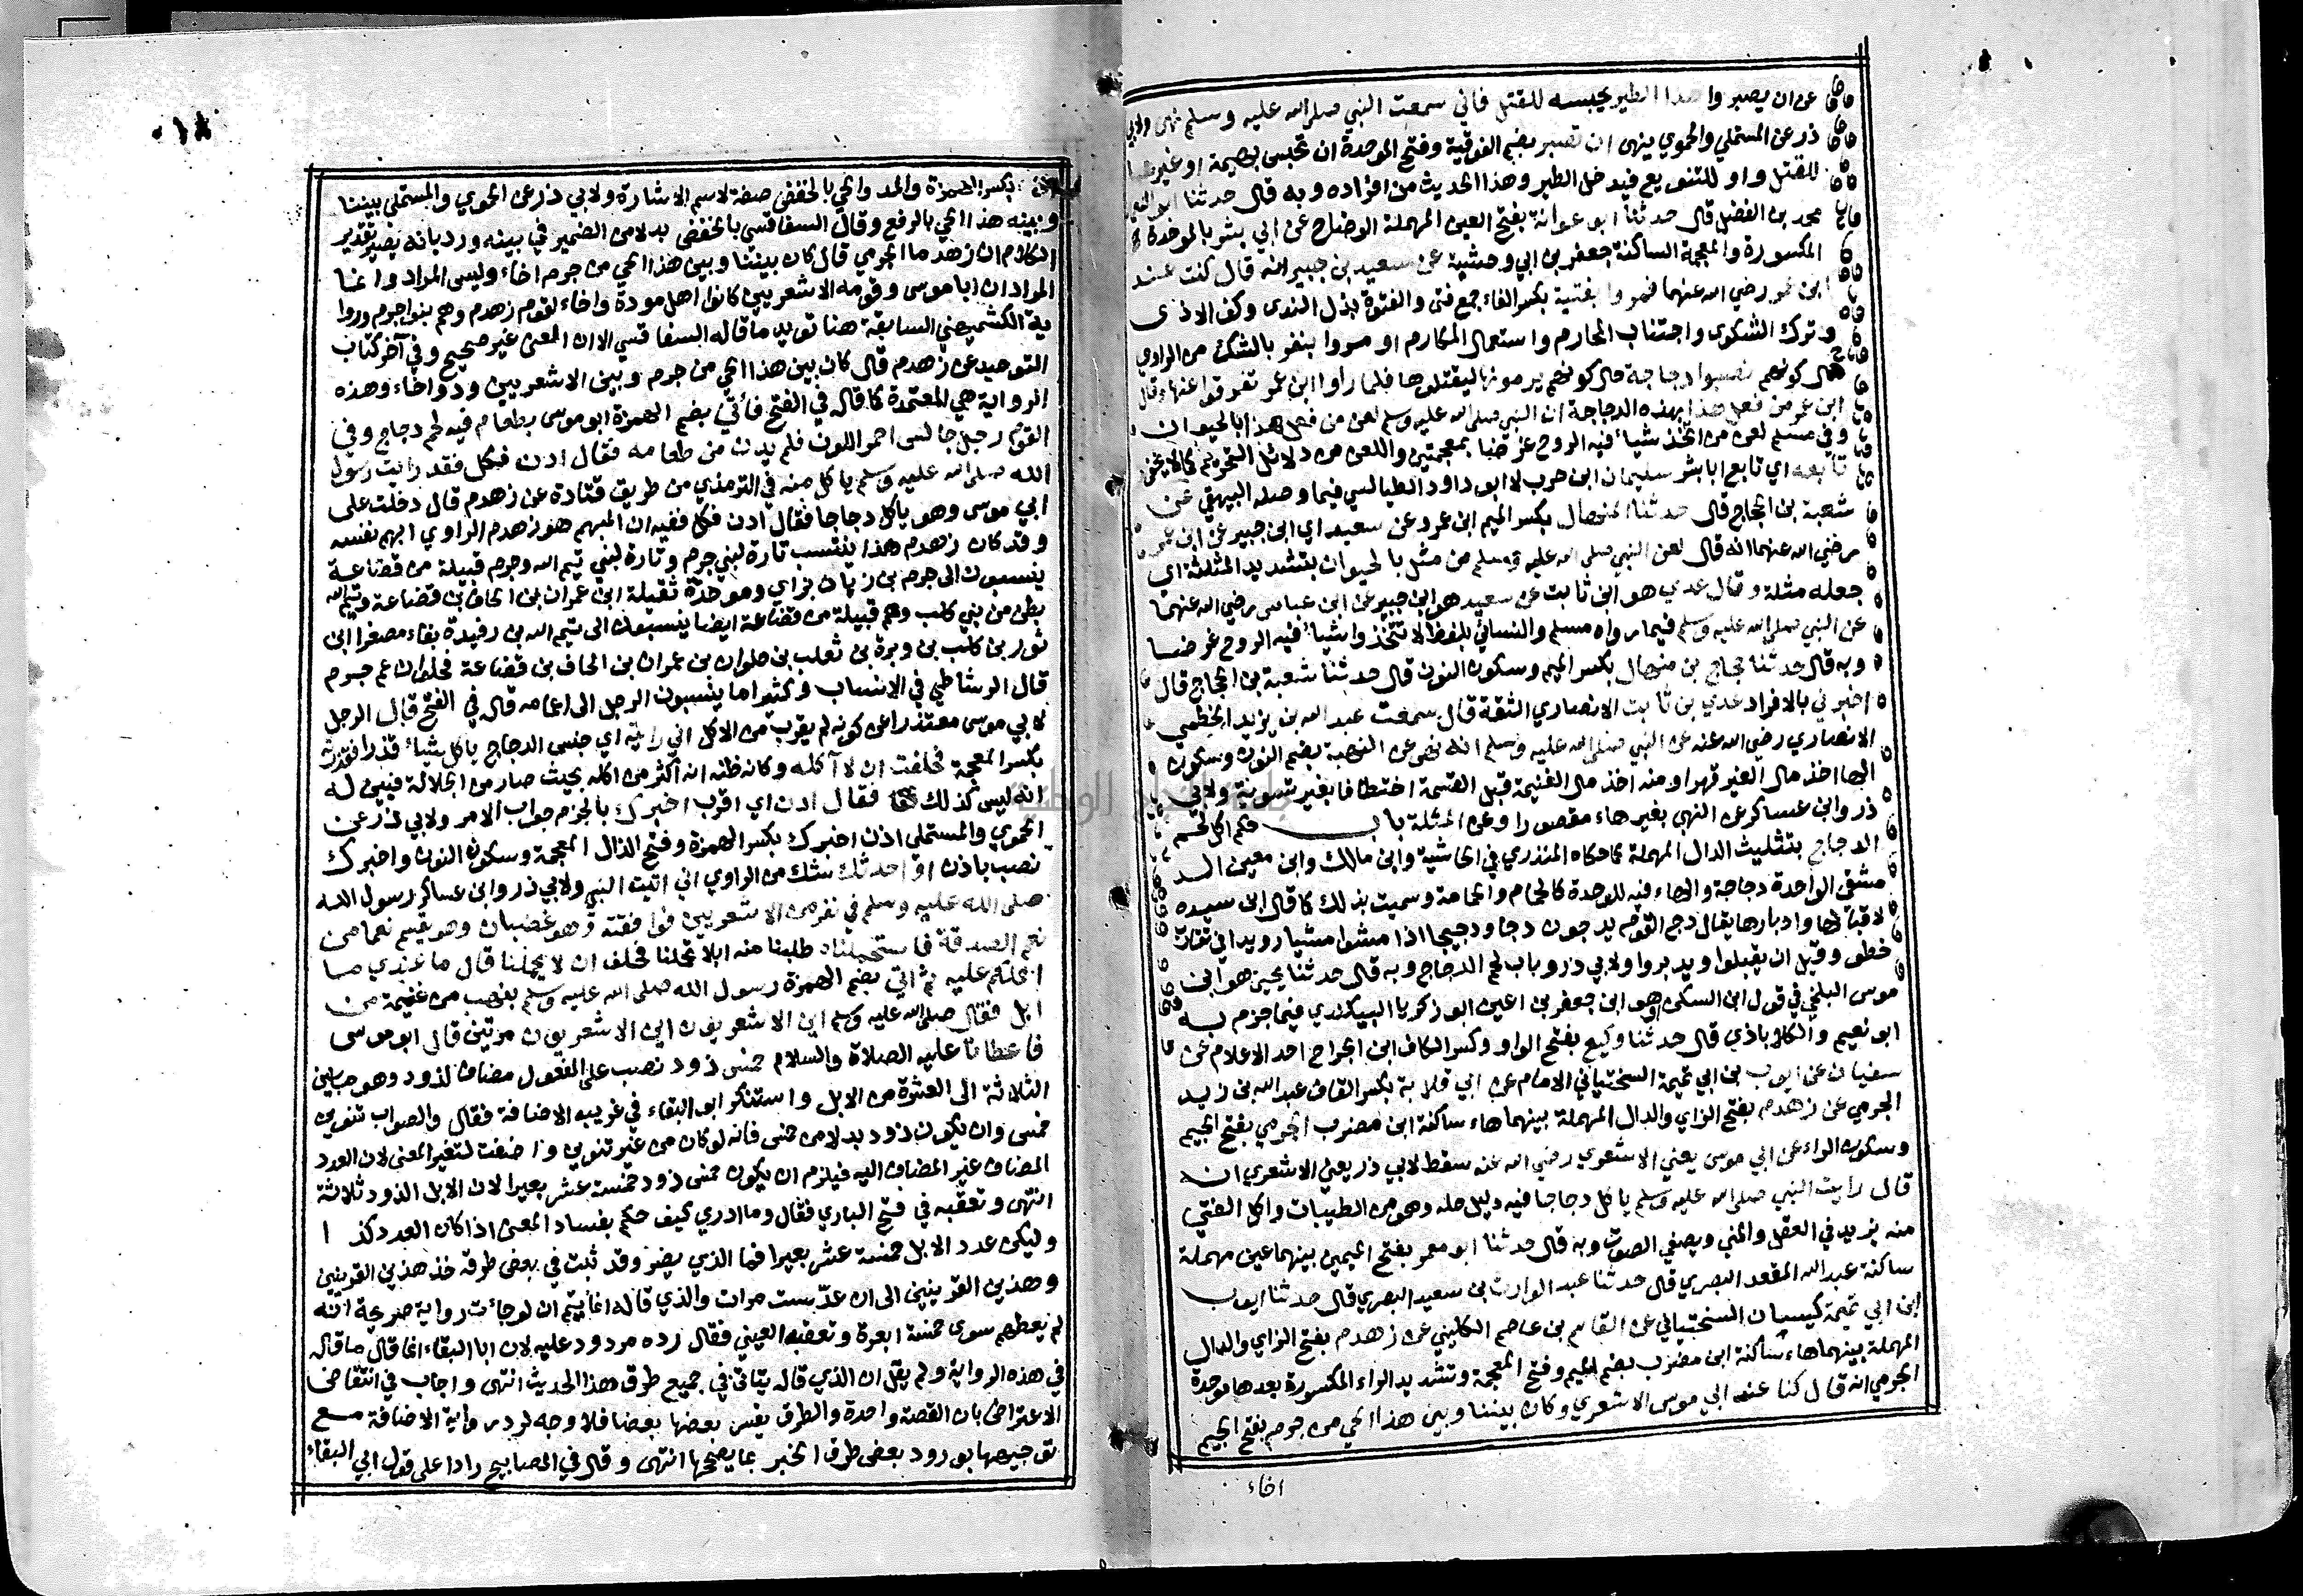 عن ان يصبر واحدا الطير يحبسه للقتل فاني سمعت النبي صلى الله عليه وسلم نهى ولابي
ذر عن المستملي والحموي ينهى ان تصبر بضم الفوقية وفتح الموحدة ان تحبس بهيمة او غيرها
للقتل واو للتنويع فيدخل الطير وهذا الحديث من افراده وبه قال حدثنا ابو النعمان
محمد بن الفضل قال حدثنا ابو عوانة بفتح العين المهملة الوضاح عن ابي بشر بالموحدة
المكسورة والمعجمة الساكنة جعفر بن ابي وحشية عن سعيد بن جبير انه قال كنت عند
ابن عمر رضي الله عنهما فمروا بفتية بكسر الفاء جمع فتى والفتوة بذل الندى وكف الاذى
وترك الشكوى واجتناب المحارم واستعمال المكارم او مروا بنفر بالشك من الراوي
حال كونهم نصبوا دجاجة حال كونهم يرمونها ليقتلوها فلما راوا ابن عمر تفرقوا عنها وقال
ابن عمر من فعل هذا بهذه الدجاجة ان النبي صلى الله عليه وسلم لعن من فعل هذا بالحيوان
وفي مسلم لعن من اتخذ شيأ فيه الروح غرضا بمعجمتين واللعن من دلائل التحريم كما لا يخفى
تابعه اي تابع ابا بشر سليمان ابن حرب لا ابو داود الطيالسي فيما وصله البيهقي عن
شعبة بن الحجاج قال حدثنا المنهال بكسر الميم ابن عمرو عن سعيد اي ابن جبير عن ابن عمر
رضي الله عنهما انه قال لعن النبي صلى الله عليه وسلم من مثل بالحيوان بتشديد المثلثة اي
جعله مثلة وقال عدي هو ابن ثابت عن سعيد هو ابن جبير عن ابن عباس رضي الله عنهما
عن النبي صلى الله عليه وسلم فيما رواه مسلم والنسائي بلفظ لا تتخذوا شيأ فيه الروح غرضا
وبه قال حدثنا حجاج بن منهال بكسر الميم وسكون النون قال حدثنا شعبة بن الحجاج قال
اخبرني بالافراد عدي بن ثابت الانصاري الثقة قال سمعت عبد الله بن يزيد الخطمي
الانصاري رضي الله عنه عن النبي صلى الله عليه وسلم انه نهى عن النهبة بضم النون وسكون
الها اخذ مال الغير قهرا ومنه اخذ مال الغنيمة قبل القسمة اختطافا بغير تسوية ولابي
ذر وابن عساكر عن النهبى بغير هاء مقصورا وعن المثلة باب حكم اكل لحم
الدجاج بتثليث الدال المهملة كما حكاه المنذري في الحاشية وابن مالك وابن معين الد
مشقي الواحدة دجاجة والهاء فيه للوحدة كالحمام والحمامة وسميت بذلك كما قال ابن سيده
لاقبالها وادبارها يقال دج القوم يدجون دجا ودجيجا اذا مشوا مشيا رويدا في تقارب
خطو وقيل ان يقبلوا ويدبروا ولابي ذر وباب لحم الدجاج وبه قال حدثنا يحيى هو ابن
موسى البلخي في قول ابن السكن او هو ابن جعفر بن اعين ابو زكريا البيكندي فيما جزم به
ابو نعيم والكلاباذي قال حدثنا وكيع بفتح الواو وكسر الكاف ابن الجراح احد الاعلام عن
سفيان عن ايوب بن ابي تميمة السختياني الامام عن ابي قلابة بكسر القاف عبد الله بن زيد
الجرمي عن زهدم بفتح الزاي والدال المهملة بينهما هاء ساكنة ابن مضرب الجرمي بفتح الجيم
وسكون الراء عن ابي موسى يعني الاشعري رضي الله عنه سقط لابي ذر يعني الاشعري انه
قال رايت النبي صلى الله عليه وسلم ياكل دجاجا فيه دليل حله وهو من الطيبات واكل الفتي
منه يزيد في العقل والمني ويصفي الصوت وبه قال حدثنا ابو معمر بفتح الميمين بينهما عين مهملة
ساكنة عبد الله المقعد البصري قال حدثنا عبد الوارث بن سعيد البصري قال حدثنا ايوب
ابن ابي تميمة كيسان السختياني عن القاسم بن عاصم الكليني عن زهدم بفتح الزاي والدال
المهملة بينهما هاء ساكنة ابن مضرب بضم الميم وفتح المعجمة وتشديد الراء المكسورة بعدها موحدة
الجرمي انه قال كنا عند ابي موسى الاشعري وكان بيننا وبين هذا الحي من جرم بفتح الجيم
اخاء
بكسر الهمزة والمد والحي بالخفض صفة لاسم الاشارة ولابي ذر عن الحموي والمستملي بيننا
وبينه هذا الحي بالرفع وقال السفاقسي بالخفض بدلا من الضمير في بينه ورد بانه يصير تقدير
الكلام ان زهدما الجرمي قال كان بيننا وبين هذا الحي من جرم اخاء وليس المراد وانما
المراد ان ابا موسى وقومه الاشعريين كانوا اهل مودة واخاء لقوم زهدم وهم بنو جرم وروا
ية الكشميهني السابقة هنا تويد ما قاله السفاقسي الا ان المعنى غير صحيح وفي آخر كتاب
التوحيد عن زهدم قال كان بين هذا الحي من جرم وبين الاشعريين ود واخاء وهذه
الرواية هي المعتمدة كما قاله في الفتح فأتي بضم الهمزة ابو موسى بطعام فيه لحم دجاج وفي
القوم رجل جالس احمر اللون فلم يدن من طعامه فقال ادن فكل فقد رايت رسول
الله صلى الله عليه وسلم ياكل منه في الترمذي من طريق قتادة عن زهدم قال دخلت على
ابي موسى وهو ياكل دجاجا فقال ادن فكل ففيه ان المبهم هو زهدم الراوي ابهم نفسه
وقد كان زهدم هذا ينتسب تارة لبني جرم وتارة لبني تيم الله وجرم قبيلة من قضاعة
ينسبون الى جرم بن زبان بزاي وموحدة ثقيلة ابن عمران بن الحاف بن قضاعة وتيم الله
بطن من بني كلب وهم قبيلة من قضاعة ايضا ينسبون الى تيم الله بن رفيدة بفاء مصغرا ابن
ثور بن كلب بن وبرة بن ثعلب بن حلوان بن عمران بن الحاف بن قضاعة فحلوان عم جرم
قال الرشاطي في الانساب وكثيرا ما ينسبون الرجل الى اعمامه قاله في الفتح قال الرجل
لابي موسى معتذرا عن كونه لم يقرب من الاكل اني رايته اي جنس الدجاج ياكل شيأ قذرا فقذرته
بكسر المعجمة فحلفت ان لا آكله وكانه ظنه انه اكثر من اكله بحيث صار من الجلالة فبين له
انه ليس كذلك فقال ادن اي اقرب اخبرك بالجزم جواب الامر ولابي ذر عن
الحموي والمستملي اذن اخبرك بكسر الهمزة وفتح الذال المعجمة وسكون النون واخبرك
نصب باذن او احدثك شك من الراوي اني اتيت النبي ولابي ذر وابن عساكر رسول الله
صلى الله عليه وسلم في نفر من الاشعريين فوافقته وهو غضبان وهو يقسم نعما من
نعم الصدقة فاستحملناه طلبنا منه ابلا تحملنا فحلف ان لا يحملنا قال ما عندي ما
احملكم عليه ثم اتي بضم الهمزة رسول الله صلى الله عليه وسلم بنهب من غنيمة من
ابل فقال صلى الله عليه وسلم اين الاشعريون اين الاشعريون مرتين قال ابو موسى
فاعطانا عليه الصلاة والسلام خمس ذود نصب على المفعول مضاف لذود وهو ما بين
الثلاثة الى العشرة من الابل واستنكر ابو البقاء في غريبه الاضافة فقال والصواب تنوين
خمس وان يكون ذود بدلا من خمس فانه لو كان من غير تنوين واضفت لتغير المعنى لان العدد
المضاف غير المضاف اليه فيلزم ان يكون خمس ذود خمسة عشر بعيرا لان الابل الذود ثلاثة
انتهى وتعقبه في فتح الباري فقال وما ادري كيف حكم بفساد المعنى اذا كان العدد كذا
وليكن عدد الابل خمسة عشر بعيرا فما الذي يضر وقد ثبت في بعض طرقه خذ هذين القرينين
وهذين القرينين الى ان عدّ ست مرات والذي قاله انما يتم ان لو جأت رواية صريحة انه
لم يعطهم سوى خمسة ابعرة وتعقبه العيني فقال رده مردود عليه لان ابا البقاء انما قال ما قاله
في هذه الرواية ولم يقل ان الذي قاله يتاتى في جميع طرق هذا الحديث انتهى واجاب في انتقاض
الاعتراض بان القصة واحدة والطرق يفسر بعضها بعضا فلا وجه لرد رواية الاضافة مع
توجيهها بورود بعض طرق الخبر بما يصححها انتهى وقال في المصابيح رادا على قول ابي البقاء